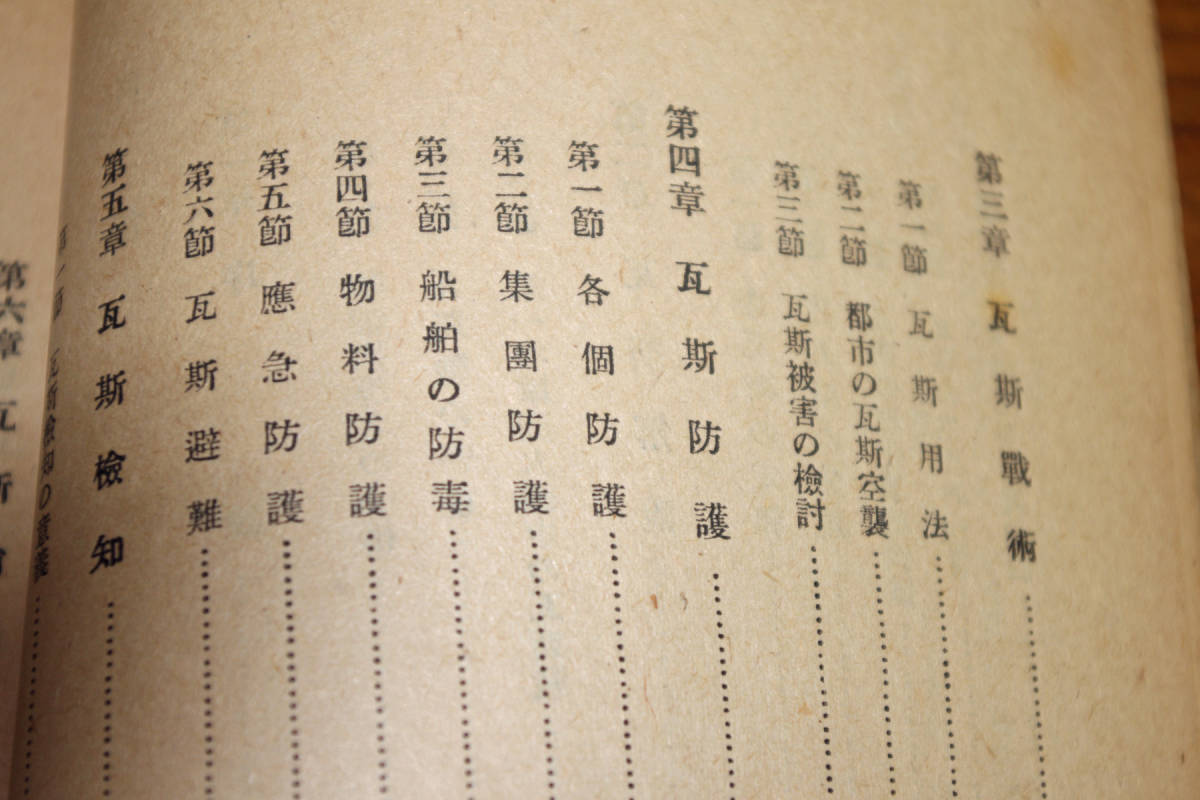 第三章 瓦斯戰術
第一節 瓦斯用法
第二節 都市の瓦斯空襲
第三節 瓦斯被害の檢討
第四章 瓦斯防護
第一節 各個防護
第二節 集團防護
第三節 船舶の防毒
第四節 物料防護
第五節 應急防護
第六節 瓦斯避難
第五章 瓦斯檢知
第一節 瓦斯檢知の意義
第六章 瓦斯